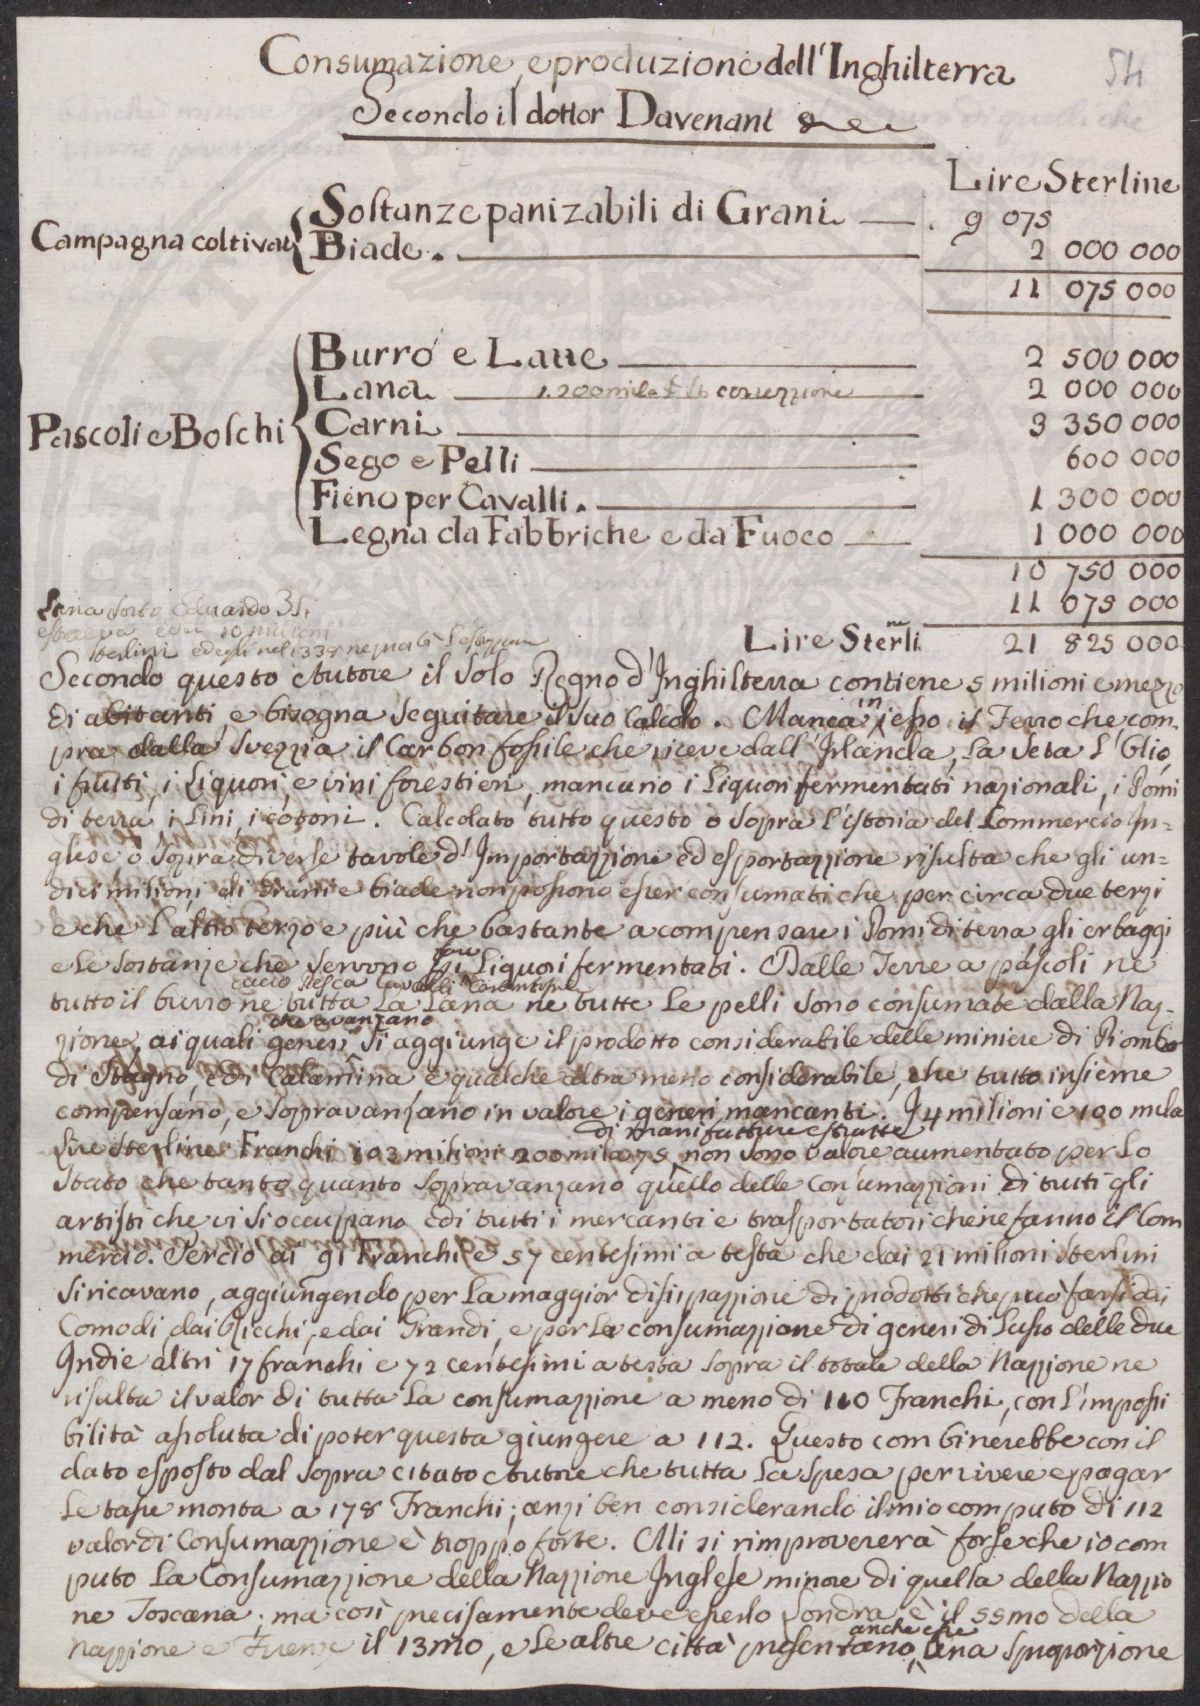 54
Consumazione e produzione dell'Inghilterra
Secondo il dottor Davenant
Lire Sterline
Campagna coltivat
Sostanze panizabili di Grani 9 075
Biade. 2 000 000
11 075 000
Pascoli e Boschi
Burro e Latte 2 500 000
Lana 1.200 mila correzzione 2 000 000
Carni 3 350 000
Sego e Pelli 600 000
Fieno per Cavalli. 1 300 000
Legna da Fabbriche e da Fuoco 1 000 000
10 750 000
11 075 000
Lire Sterline 21 825 000
Lana sotto Eduardo
10 milioni
sterlini
Secondo questo Autore il solo Regno d'Inghilterra contiene 5 milioni e mezzo
di abitanti e bisogna seguitare il suo Calcolo. Manca in esso il Ferro che com-
pra dalla Svezzia il Carbon fossile che riceve dall'Irlanda, la seta l'Olio,
i frutti, i Liquori, e vini forestieri, mancano i Liquori fermentati nazionali, i Pomi
di terra, i Lini, i cotoni. Calcolato tutto questo o sopra l'istoria del Commercio In-
glese o sopra diverse tavole d'Importazzione ed esportazzione risulta che gli un=
dici milioni di Grani e biade non possono esser consumati che per circa due terzi
e che l'altro terzo e più che bastante a compensare i Pomi di terra gli erbaggi
e le sostanze che servono Liquori fermentati. Dalle Terre a pascoli ne
tutto il burro ne tutta la Lana ne tutte le pelli sono consumate dalla Naz-
zione, ai quali generi che avanzano si aggiunge il prodotto considerabile delle miniere di Piombo
di Stagno, e di Calamina e qualche altra meno considerabile, che tutto insieme
compensano, e sopravanzano in valore i generi mancanti. I 4 milioni e 100 mila
Lire Sterline Franchi 103 milioni 200 mila 75 di manifatture estratte non sono valore aumentato per lo
stato che tanto quanto sopravanzano quello delle Consumazzioni di tutti gli
artisti che vi si occupano e di tutti i mercanti e trasportatori che ne fanno il Com
mercio. Perciò ai 91 Franchi e 57 centesimi a testa che dai 21 milioni sterlini
si ricavano, aggiungendo per la maggior dissipazzione di prodotti che può farsi dai
Comodi, dai Ricchi, e dai Grandi, e per la consumazzione di generi di Lusso delle due
Indie altri 17 franchi e 72 centesimi a testa sopra il totale della Nazzione ne
risulta il valor di tutta la consumazzione a meno di 110 Franchi, con l'impossi
bilità assoluta di poter questa giungere a 112. Questo combinerebbe con il
dato esposto dal sopra citato Autore che tutta la spesa per vivere e pagar
le tasse monta a 178 Franchi; anzi ben considerando il mio computo di 112
valor di Consumazzione è troppo forte. Mi si rimprovererà forse che io com
puto la Consumazzione della Nazzione Inglese minore di quella della Nazzio
ne Toscana; ma così precisamente deve esserlo Londra è il 55mo della
Nazzione e Firenze il 13mo, e le altre città presentano anche esse una sproporzione